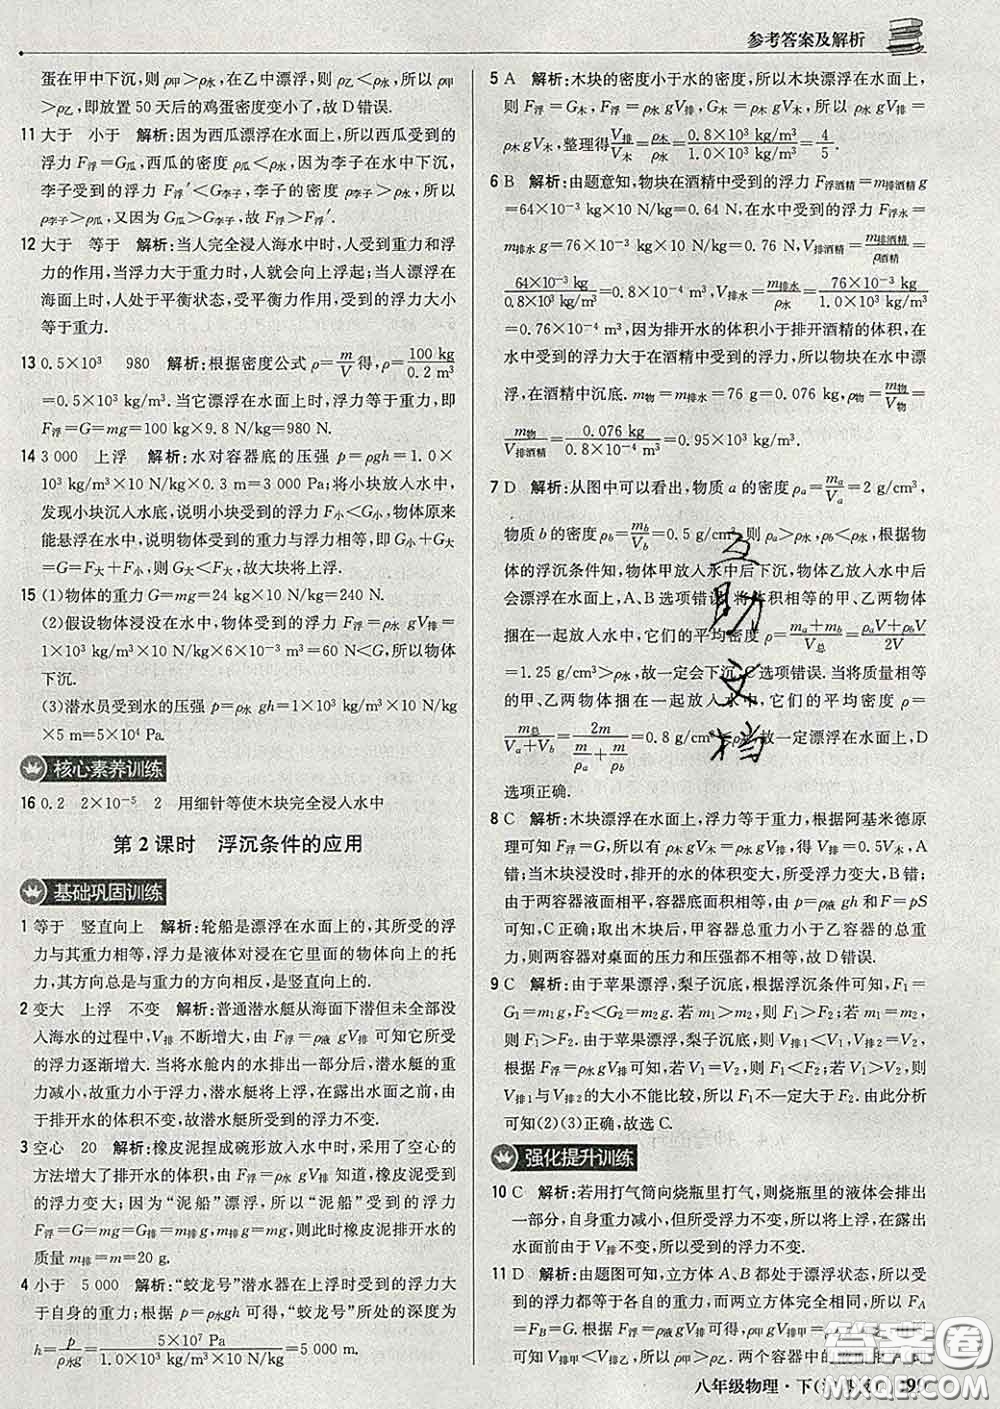 参考答案及解析
蛋在甲中下沉,则 ρ甲>ρ水,在乙中漂浮,则 ρ乙<ρ水,所以 ρ甲
>ρ乙,即放置 50 天后的鸡蛋密度变小了,故 D 错误.
11 大于 小于 解析:因为西瓜漂浮在水面上,所以西瓜受到的
浮力 F浮=G瓜,西瓜的密度 ρ瓜<ρ水,因为李子在水中下沉,
李子受到的浮力 F浮′<G李子,李子的密度 ρ李子>ρ水,所以
ρ李子>ρ瓜,又因为 G瓜>G李子,故 F浮>F浮′.
12 大于 等于 解析:当人完全浸入海水中时,人受到重力和浮
力的作用,当浮力大于重力时,人就会向上浮起;当人漂浮在
海面上时,人处于平衡状态,受平衡力作用,受到的浮力大小
等于重力.
13 0.5×10³ 980 解析:根据密度公式 ρ=m/V得,ρ=100 kg/0.2 m³
=0.5×10³ kg/m³.当它漂浮在水面上时,浮力等于重力,即
F浮=G=mg=100 kg×9.8 N/kg=980 N.
14 3 000 上浮 解析:水对容器底的压强 p=ρgh=1.0×
10³ kg/m³×10 N/kg×0.3 m=3 000 Pa;将小块放入水中,
发现小块沉入水底,说明小块受到的浮力 F小<G小,物体原来
能悬浮在水中,说明物体受到的重力与浮力相等,即 G小+G大
=G=F大+F小,则 G大<F大,故大块将上浮.
15 (1)物体的重力 G=mg=24 kg×10 N/kg=240 N.
(2)假设物体浸没在水中,物体受到的浮力 F浮=ρ水 gV排=
1×10³ kg/m³×10 N/kg×6×10⁻³ m³=60 N<G,所以物体
下沉.
(3)潜水员受到水的压强 p=ρ水 gh=1×10³ kg/m³×10 N/kg
×5 m=5×10⁴ Pa.
核心素养训练
16 0.2 2×10⁻⁵ 2 用细针等使木块完全浸入水中
第 2 课时 浮沉条件的应用
基础巩固训练
1 等于 竖直向上 解析:轮船是漂浮在水面上的,其所受的浮
力与其重力相等,浮力是液体对浸在它里面的物体向上的托
力,其方向总是与重力的方向相反,是竖直向上的.
2 变大 上浮 不变 解析:普通潜水艇从海面下潜但未全部没
入海水的过程中,V排 不断增大,由 F浮=ρ液 gV排 可知它所受的
浮力逐渐增大.当将水舱内的水排出一部分后,潜水艇的重
力减小,故重力小于浮力,潜水艇将上浮,在露出水面之前,由
于排开水的体积不变,故潜水艇所受到的浮力不变.
3 空心 20 解析:橡皮泥捏成碗形放入水中时,采用了空心的
方法增大了排开水的体积,由 F浮=ρ水 gV排 知道,橡皮泥受到
的浮力变大;因为“泥船”漂浮,所以“泥船”受到的浮力
F浮=G=mg=G排=m排g,则此时橡皮泥排开水的质
量 m排=m=20 g.
4 小于 5 000 解析:“蛟龙号”潜水器在上浮时受到的浮力大
于自身的重力;根据 p=ρ水gh 可得,“蛟龙号”所处的深度为
h=p/ρ水g=5×10⁷ Pa/1.0×10³ kg/m³×10 N/kg=5 000 m.
5 A 解析:木块的密度小于水的密度,所以木块漂浮在水面上,
则 F浮=G木,F浮=ρ水 gV排,G木=ρ木 gV木,所以 ρ水 gV排=
ρ木 gV木,整理得V排/V木=ρ木/ρ水=0.8×10³ kg/m³/1.0×10³ kg/m³=4/5.
6 B 解析:由题意知,物块在酒精中受到的浮力 F浮酒精=m排酒精 g
=64×10⁻³ kg×10 N/kg=0.64 N,在水中受到的浮力 F浮水=
m排水 g=76×10⁻³ kg×10 N/kg=0.76 N,V排酒精=m排酒精/ρ酒精=
64×10⁻³ kg/0.8×10³ kg/m³=0.8×10⁻⁴ m³,V排水=m排水/ρ水=76×10⁻³ kg/1.0×10³ kg/m³
=0.76×10⁻⁴ m³,因为排开水的体积小于排开酒精的体积,在
水中受到的浮力大于在酒精中受到的浮力,所以物块在水中漂
浮,在酒精中沉底.m物=m排水=76 g=0.076 kg,ρ物=m物/V物=
m物/V排酒精=0.076 kg/0.8×10⁻⁴ m³=0.95×10³ kg/m³.
7 D 解析:从图中可以看出,物质 a 的密度 ρa=ma/Va=2 g/cm³,
物质 b 的密度 ρb=mb/Vb=0.5 g/cm³,则 ρa>ρ水,ρb<ρ水,根据物
体的浮沉条件知,物体甲放入水中后下沉,物体乙放入水中后
会漂浮在水面上,A、B 选项错误.将体积相等的甲、乙两物体
捆在一起放入水中,它们的平均密度 ρ=ma+mb/V总=ρaV+ρbV/2V
=1.25 g/cm³>ρ水,故一定会下沉,C 选项错误.当将质量相等
的甲、乙两物体捆在一起放入水中,它们的平均密度 ρ=
m总/Va+Vb=2m/(m/ρa+m/ρb)=0.8 g/cm³<ρ水,故一定漂浮在水面上,D
选项正确.
8 C 解析:木块漂浮在水面上,浮力等于重力,根据阿基米德原
理可知 F浮=G,所以有 ρ木 gV木=ρ水 gV排,得 V排=0.5V木,A
错;当木块浸没时,排开的水的体积变大,所受浮力变大,B 错;
由于两容器液面相平,根据 p=ρ水 gh 和 F=pS
可知,C 正确;取出木块后,甲容器的总重力小于乙容器的总重
力,则两容器对桌面的压力和压强都不相等,故 D 错误.
9 C 解析:由于苹果漂浮,梨子沉底,根据浮沉条件可知,F₁=
G₁=m₁g,F₂<G₂=m₂g.若 m₁>m₂,则 F₁>F₂;若 m₁=m₂,则
F₁>F₂.由于苹果漂浮,梨子沉底,则 V排1<V₁,V排2=V₂,
根据 F浮=ρ水 gV排可知,若 V₁=V₂,则 F₁<F₂;若 V₁>V₂,则
V排1与 V排2的大小不能比较,所以 F₁ 不一定大于 F₂.由此分析
可知(2)(3)正确,故选 C.
强化提升训练
10 C 解析:若用打气筒向烧瓶里打气,则烧瓶里的液体会排出
一部分,自身重力减小,但所受浮力不变,所以将上浮,在露出
水面前由于 V排不变,所以受到的浮力不变.
11 D 解析:由题图可知,立方体 A、B 都处于漂浮状态,所以受
到的浮力都等于各自的重力,而两立方体完全相同,所以 FA
=FB=G.
由图知 V排甲<V排乙,所以 ρ甲>ρ乙.两个容器中的液
八年级物理·下
互助文档
答案圈